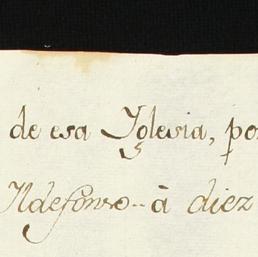 de esa Yglesia, por
Ildefonso-- à diez